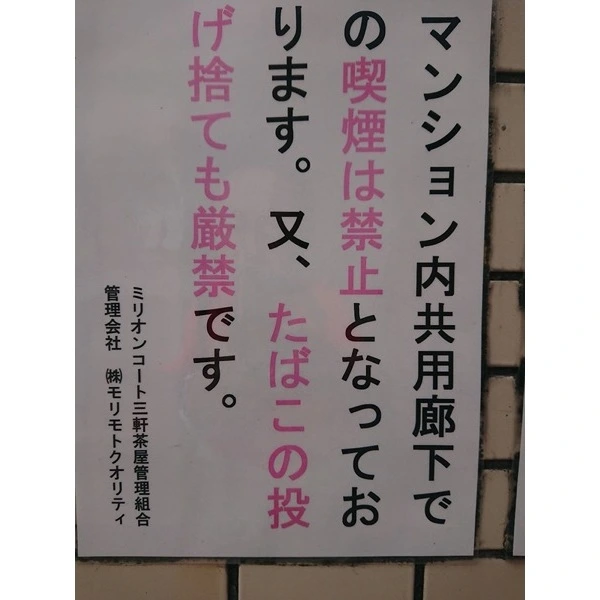 マンション内共用廊下で
の喫煙は禁止となってお
ります。又、たばこの投
げ捨ても厳禁です。
ミリオンコート三軒茶屋管理組合
管理会社 ㈱モリモトクオリティ